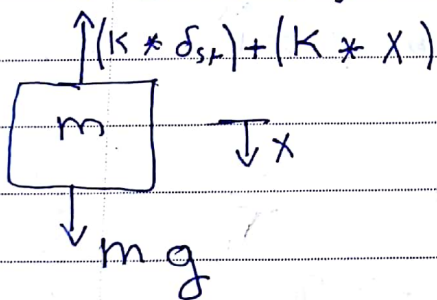 (K * δst) + (K * X)
m
X
mg